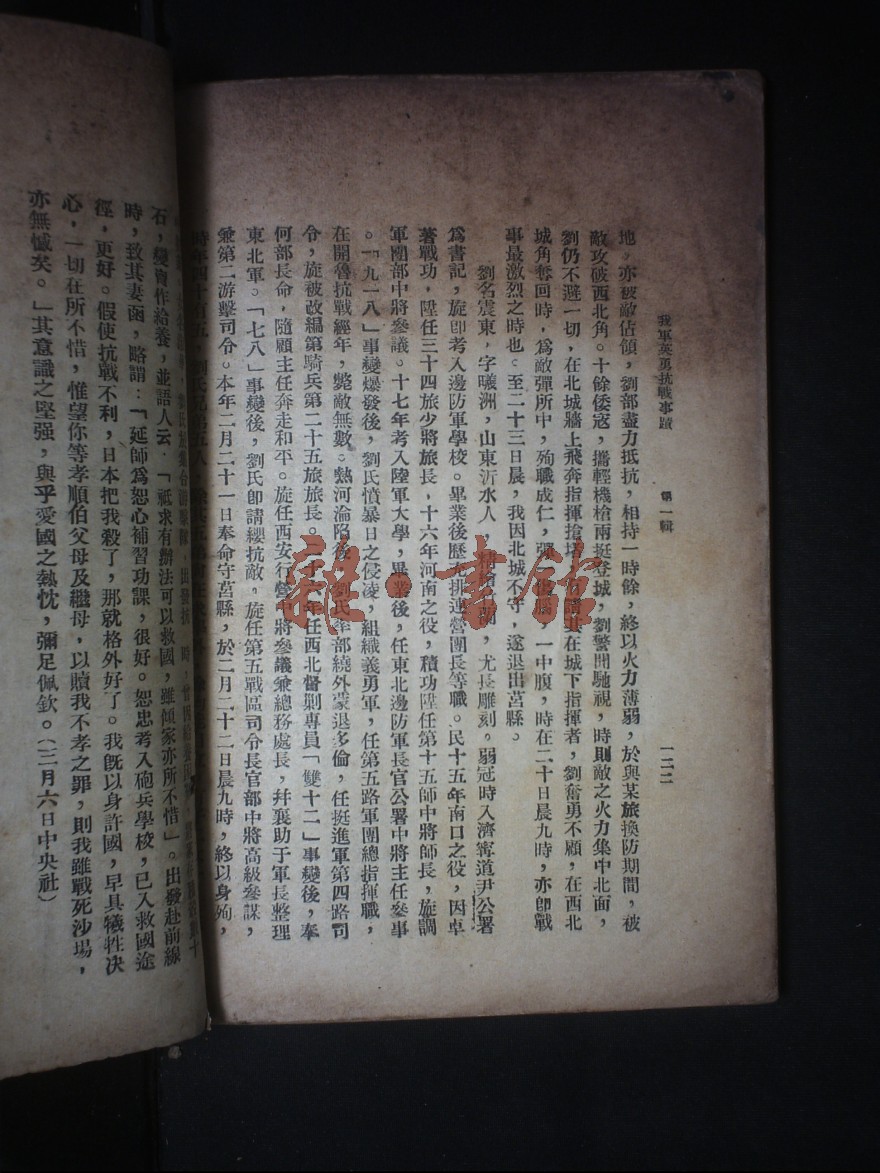 我軍英勇抗戰事蹟　第一輯　一二二
地。亦被敵佔領，劉部盡力抵抗，相持一時餘，終以火力薄弱，於與某旅換防期間，被
敵攻破西北角。十餘倭寇，攜輕機槍兩挺登城，劉警聞馳視，時則敵之火力集中北面，
劉仍不避一切，在北城牆上飛奔指揮搶堵，有請其在城下指揮者，劉奮勇不顧，在西北
城角奪回時，爲敵彈所中，殉職成仁，彈一中腹，時在二十日晨九時，亦卽戰
事最激烈之時也。至二十三日晨，我因北城不守，遂退出莒縣。
劉名震東，字曦洲，山東沂水人，蘭，尤長雕刻。弱冠時入濟寧道尹公署
爲書記，旋卽考入邊防軍學校。畢業後歷充排連營團長等職。民十五年南口之役，因卓
著戰功，陞任三十四旅少將旅長，十六年河南之役，積功陞任第十五師中將師長，旋調
軍團部中將參議。十七年考入陸軍大學，畢業後，任東北邊防軍長官公署中將主任參事
。「九一八」事變爆發後，劉氏憤暴日之侵凌，組織義勇軍，任第五路軍團總指揮職，
在開魯抗戰經年，斃敵無數。熱河淪陷後，劉氏率部繞外蒙退多倫，任挺進軍第四路司
令，旋被改編第騎兵第二十五旅旅長。二十六年任西北督剿專員「雙十二」事變後，奉
何部長命，隨顧主任奔走和平。旋任西安行營中將參議兼總務處長，幷襄助于軍長整理
東北軍。「七八」事變後，劉氏卽請纓抗敵。旋任第五戰區司令長官部中將高級參謀，
兼第二游擊司令。本年二月二十一日奉命守莒縣，於二月二十二日晨九時，終以身殉，
時年四十有五，劉氏
石，變賣作給養，並語人云：「祇求有辦法可以救國，雖傾家亦所不惜」。出發赴前線
時，致其妻函，略謂：「延師爲恕心補習功課，很好。恕忠考入砲兵學校，已入救國途
徑，更好。假使抗戰不利，日本把我殺了，那就格外好了。我旣以身許國，早具犧牲决
心，一切在所不惜，惟望你等孝順伯父母及繼母，以贖我不孝之罪，則我雖戰死沙場，
亦無憾矣。」其意識之堅强，與乎愛國之熱忱，彌足佩欽。（三月六日中央社）
雜·書館